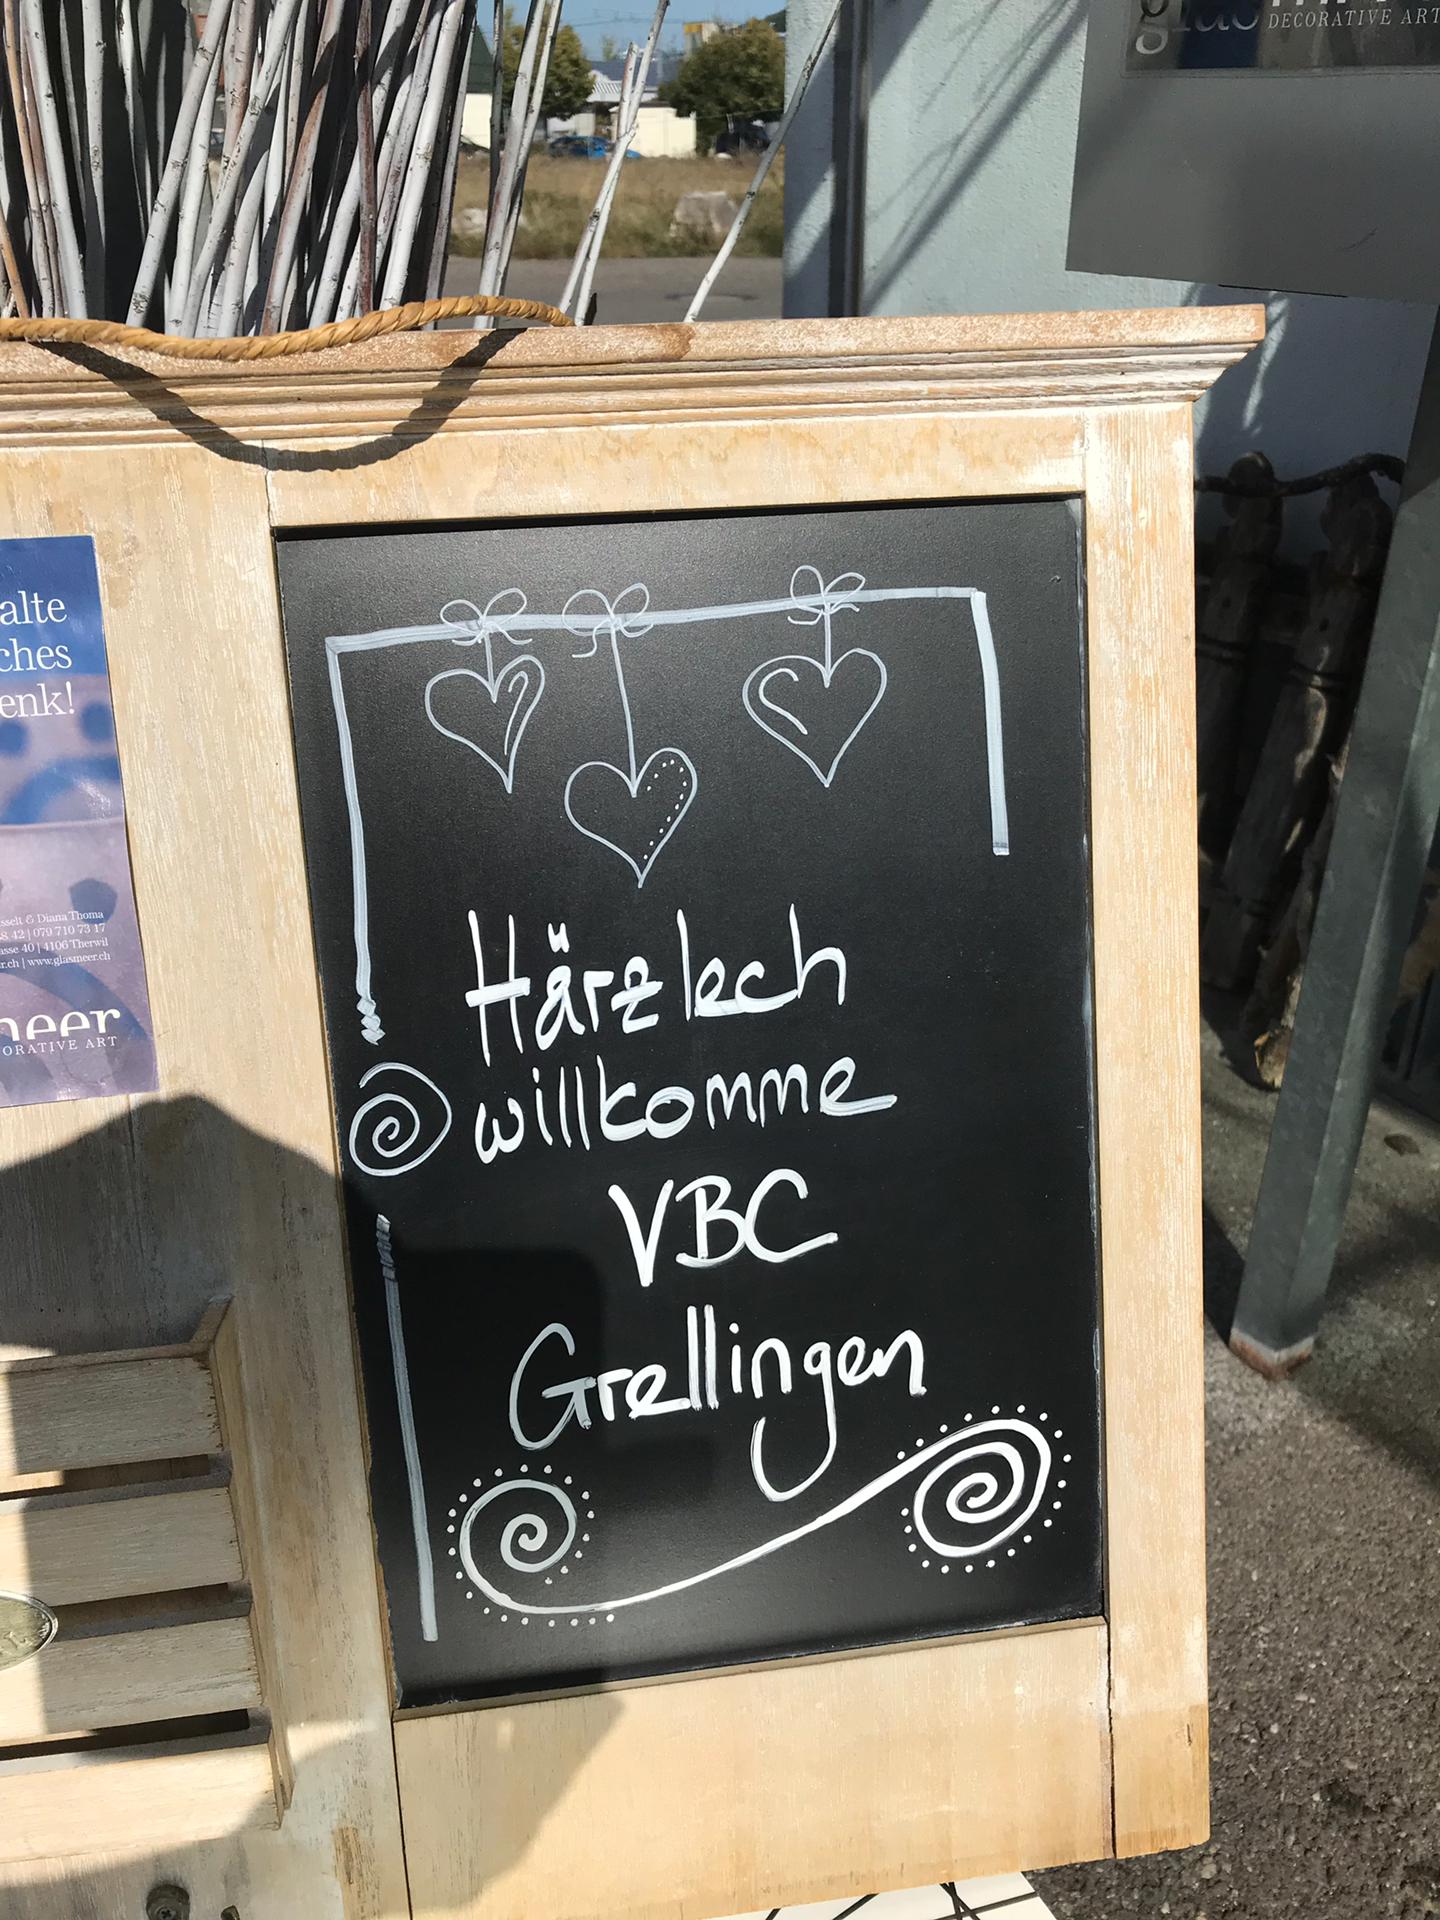 DECORATIVE ART
alte
ches
enk!
sselt & Diana Thoma
42 | 079 710 73 17
asse 40 | 4106 Therwil
r.ch | www.glasmeer.ch
meer
ORATIVE ART
Härzlech
willkomme
VBC
Grellingen